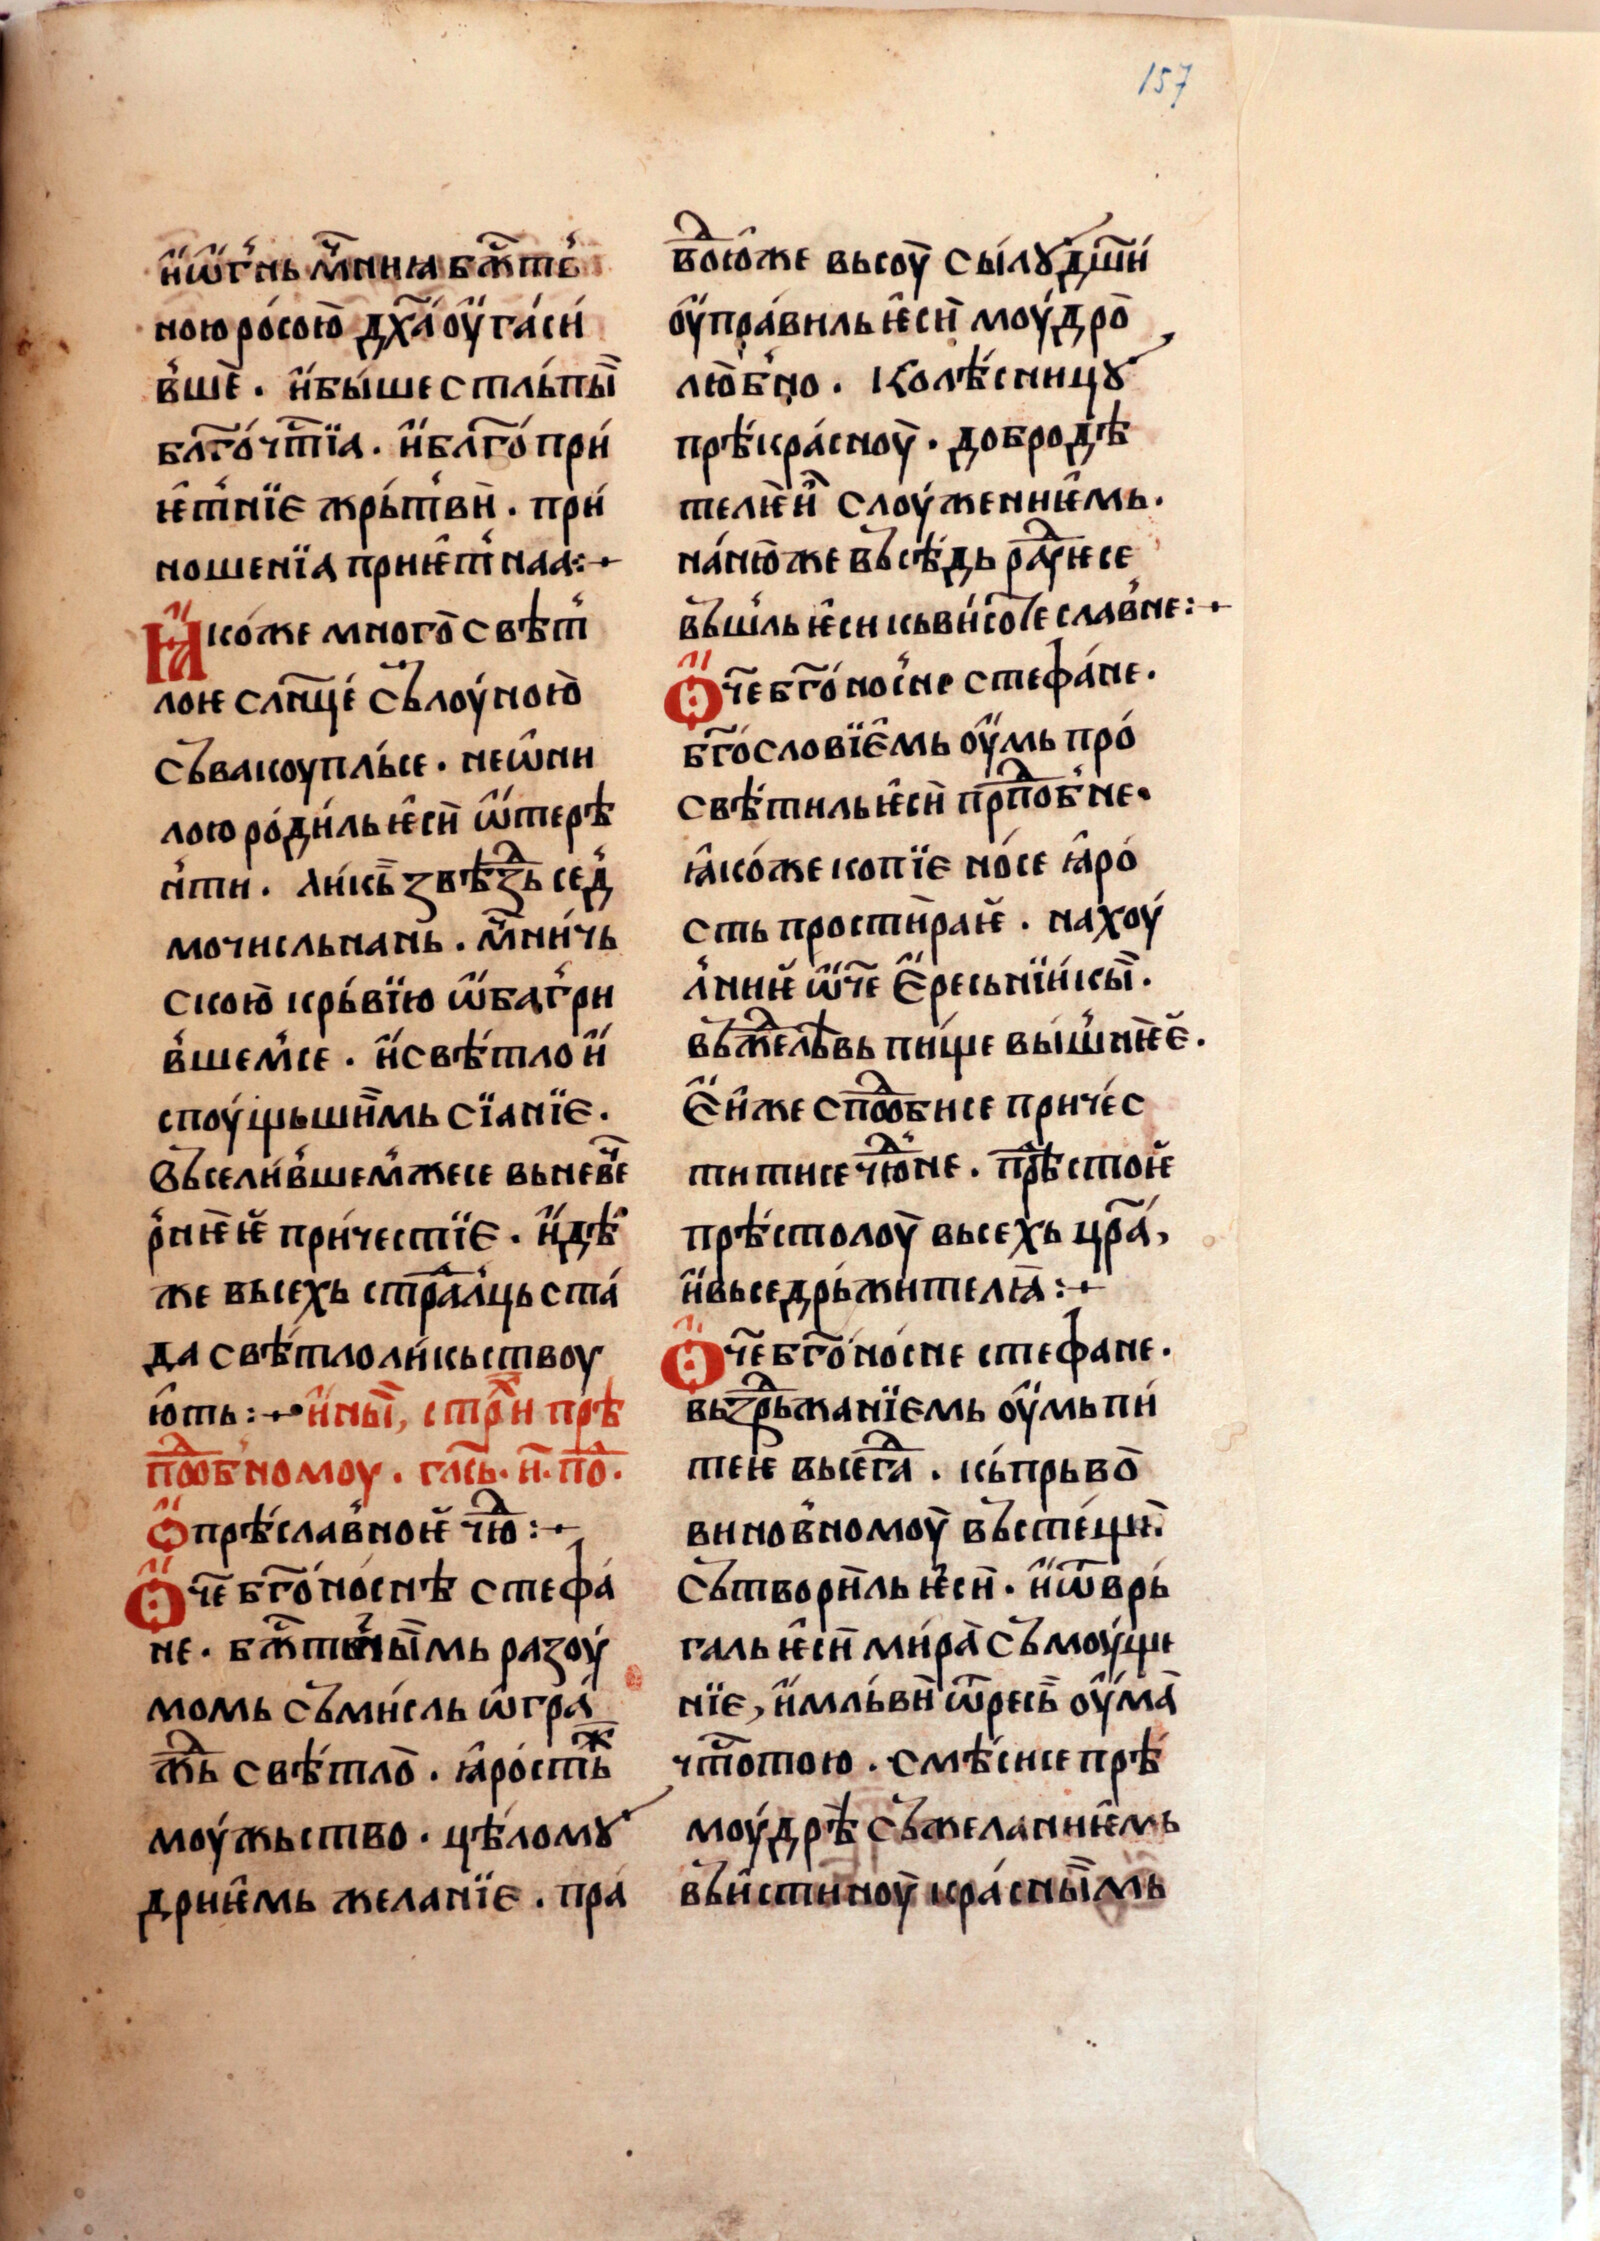 157
и҆ѡ҆гнь мч҃нїꙗ бж҃тв҃
ною ро́сою дх҃а оу҆га́си
вше . и҆бы́ше стль́пы
бл҃гоч҃тїа . и҆бл҃гопри
ѥ҆тнїе жрь́тви . при
ношенїа приѥ҆тнаа :+
Ꙗ҆ко́же много свѣт
лоѥ сл҃нце съ лоу́ною
съвакоупль́се . неѡ҆ни
лою роди́ль ѥ҆си ѿ тере
нти . ли́кь звѣзⷣь сед
мочисльнань . мч҃ни́чь
скою крь́вїю ѡ҆багри
вшемсе . и҆свѣ́тло и҆
споу́щьшимь сїанїе .
Въсели́вшемжесе вьневе
рниѥ при́честїе . и҆дѣ
же вьсехь страⷣлць ста́
да свѣ́тло ли́кьствоу
ю҆ть :+ и҆ны, стр҃и прѣ
поⷣбномоу . гла́сь . и҃ . поⷣ .
Ѽ прѣ́славноѥ чюⷣ :+
Ѻ҆ч҃е бг҃оно́снѣ стефа́
не . бж҃тв҃ными́мь разоу́
момь съми́сль ѡ҆гра́
жⷣь свѣ́тло . ꙗ҆рость ж
моу́жьство . цѣ́ломꙋ
дриѥ҆мь желанїе . пра́
воⷣю҆же вьсоу сы́лꙋ дш҃и
оу҆пра́виль ѥ҆си моу́дро
любно . колѣ́сницꙋ
прѣ́кра́сноу . добродѣ
телѥи҆ слоу́женниѥ҆мь .
на́ню҆же въсѣ́дь раⷣꙋисе
въшль ѥ҆си кьви́соте славне :+
Ѻ҆ч҃е бг҃оно́сне стефа́не .
бг҃ословїе҆мь оу҆мь про́
свѣ́тиль ѥ҆си прⷣпоⷣбне .
ꙗ҆ко́же копїе но́се ꙗ҆ро́
сть прости́раѥ . на хоу́
лниѥ ѡ҆ч҃е е҆ресьни́кы .
въжⷣелѣвь пи́ще вы́шнѥе .
е҆ѥ҆же споⷣобисе приче́с
титисе чюⷣне . прⷣѣстоѥ
прѣ́столоу вьсехь цр҃а́,
и҆вьседрь́жителꙗ :+
Ѻ҆ч҃е бг҃оно́сне стефане .
вьзⷣрьжанїемь оу҆мь пи́
теѥ вьсегⷣа . кь́прьво
виновномоу въсте́щи
сътвори́ль ѥ҆си . и҆ѿврь́
галь ѥ҆си ми́ра съмоу́ще
нїе, и҆мль́ви ѿресь оу҆ма
чт҃отою . смѣ́сисе прѣ́
моу́дрѣ съжеланниѥ҆мь
въи҆стинноу кра́снымь